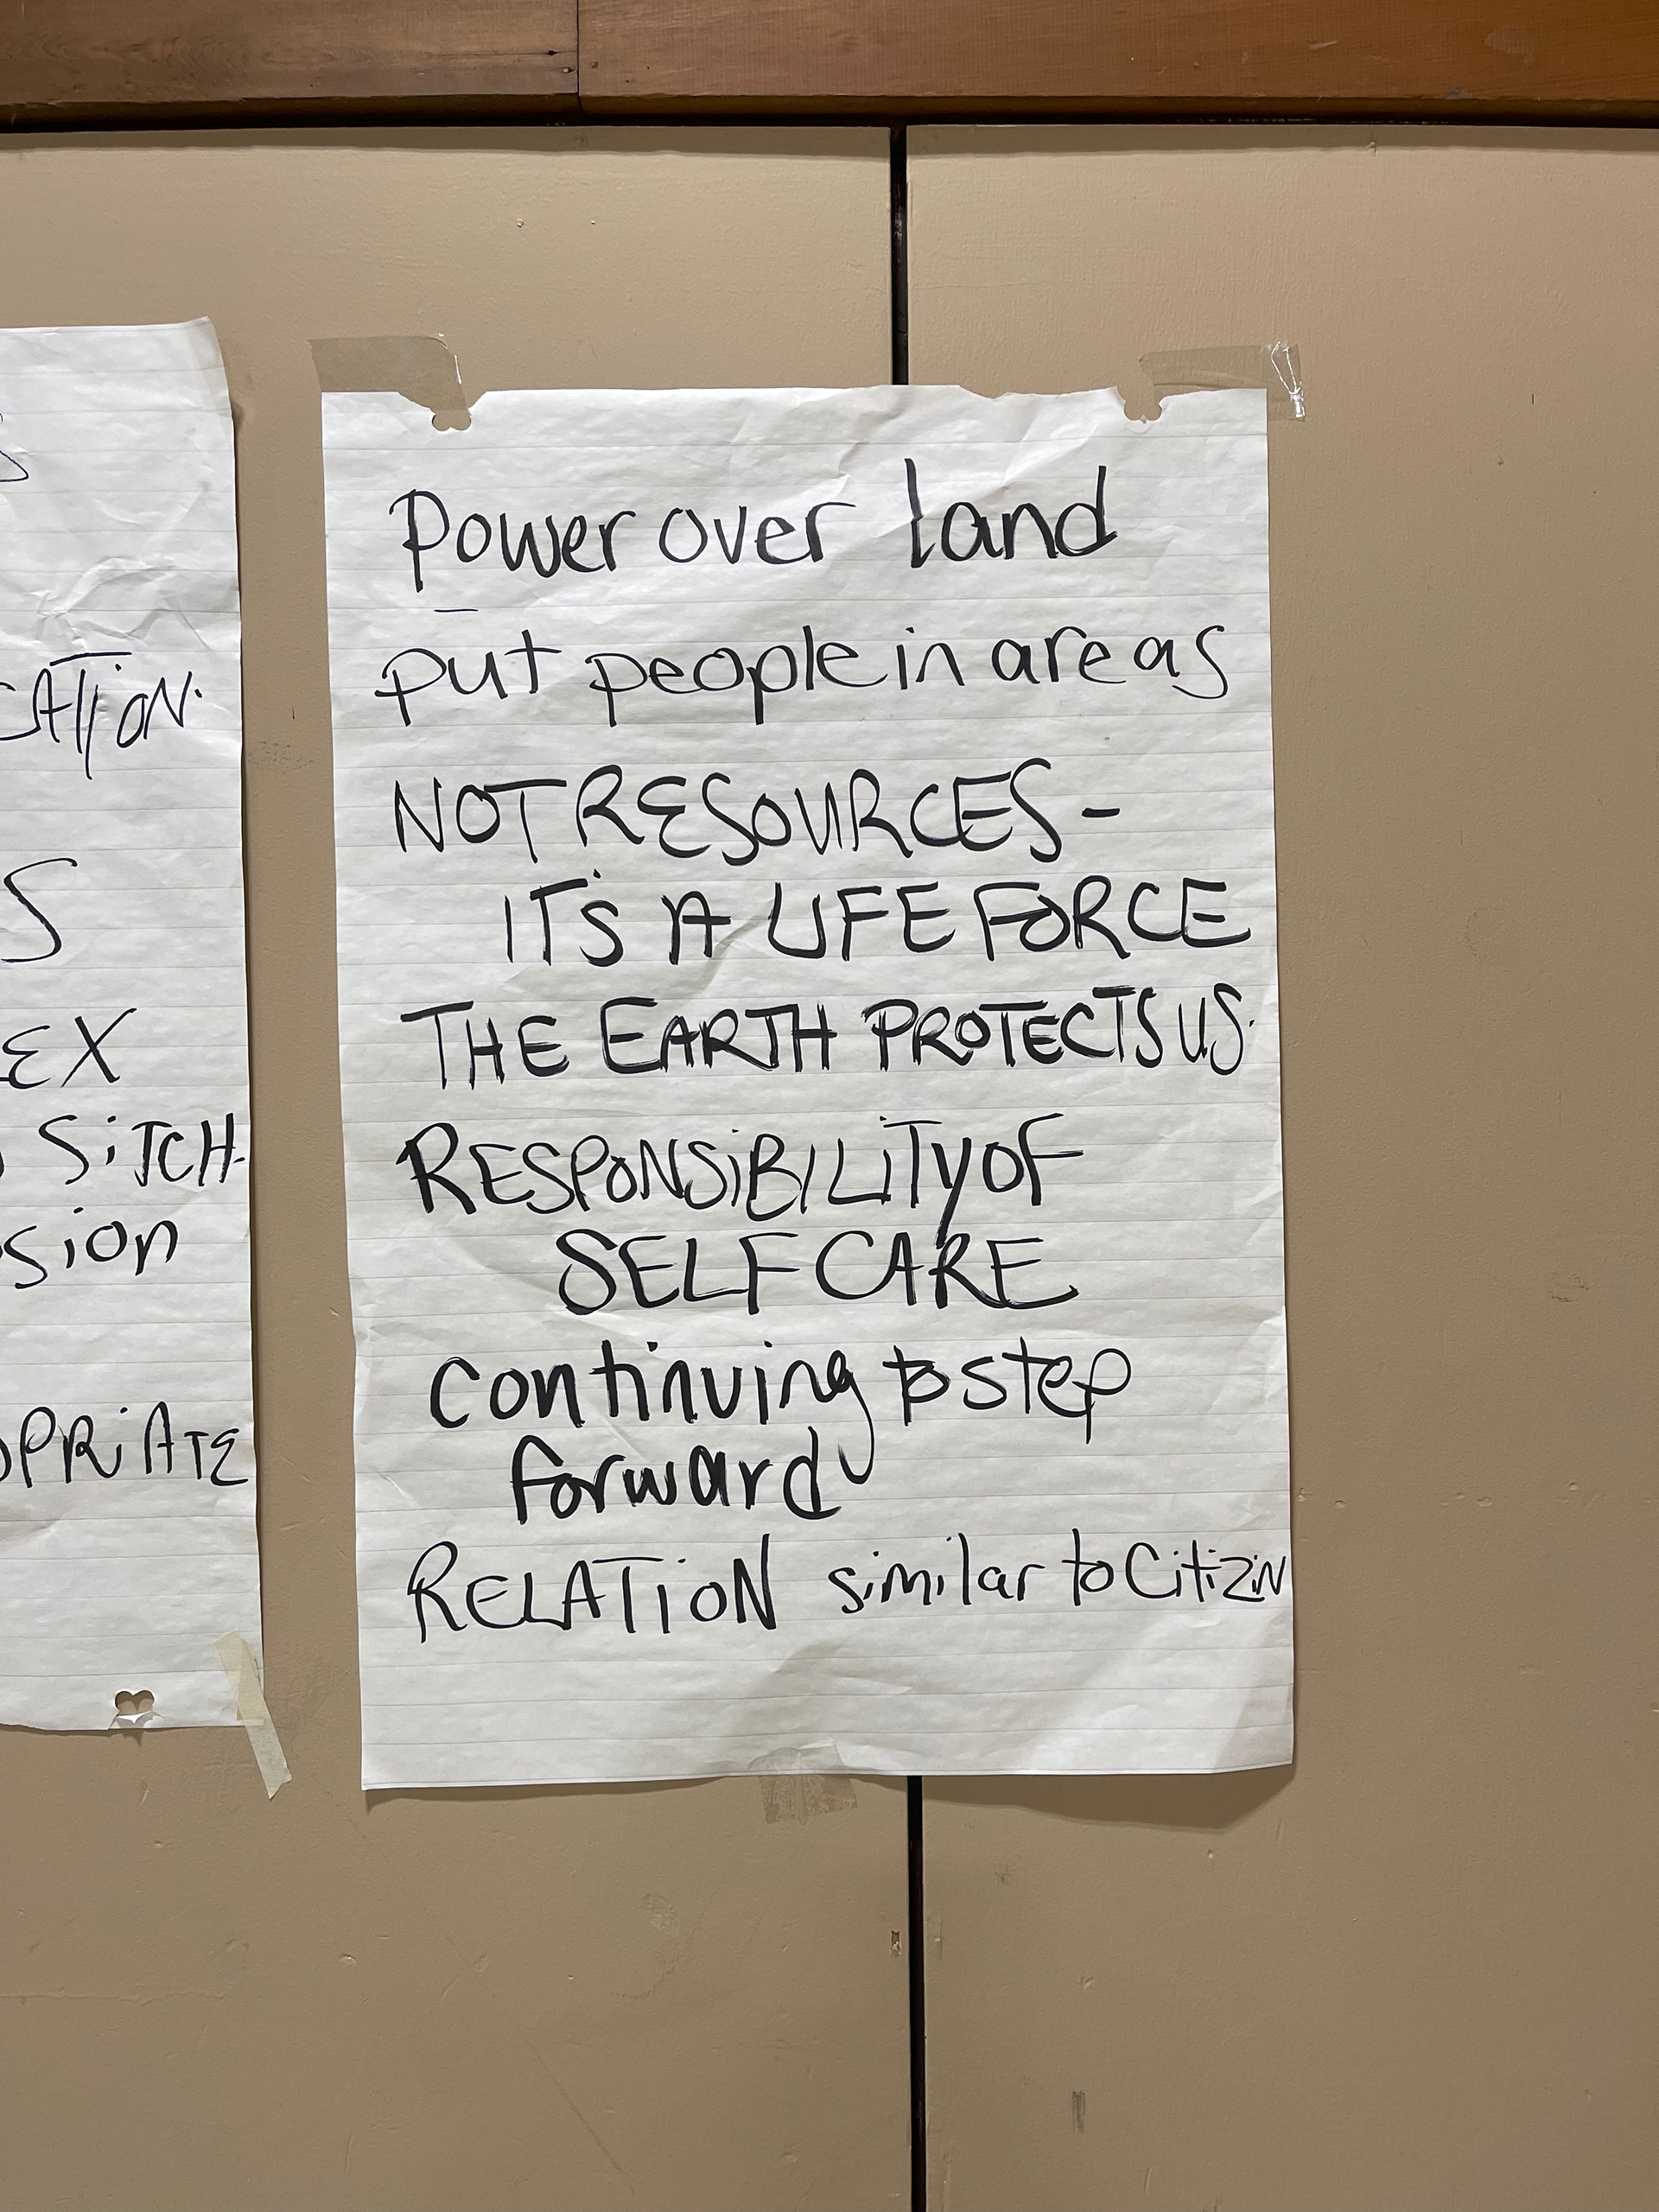 SATION.
S
EX
SiTCH-
sion
OPRiATE
Power over land
put people in areas
NOT RESOURCES -
IT'S A LIFE FORCE
THE EARTH PROTECTS US.
RESPONSiBILiTy OF
SELF CARE
continuing to step
forward
RELATiON similar to Citizin